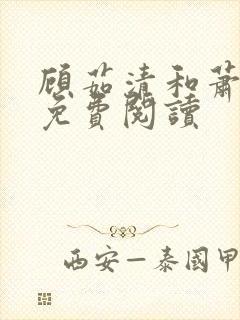 顾茹清和萧
免費閱讀
西安—泰國甲